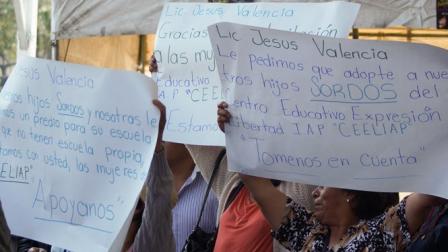 Jesus Valencia
hijos SORDOS y nosotras le
un predio para su escuela
que no tienen escuela propia,
con usted, las mujeres
Apoyanos
Lic Jesus Valencia
Gracias
a las
Educativo
IAP "CEE
Estamo
Lic Jesus Valencia
Le pedimos que adopte a nu
hijos SORDOS del
Centro Educativo Expresión
Libertad IAP "CEELIAP"
"Tomenos en Cuenta"